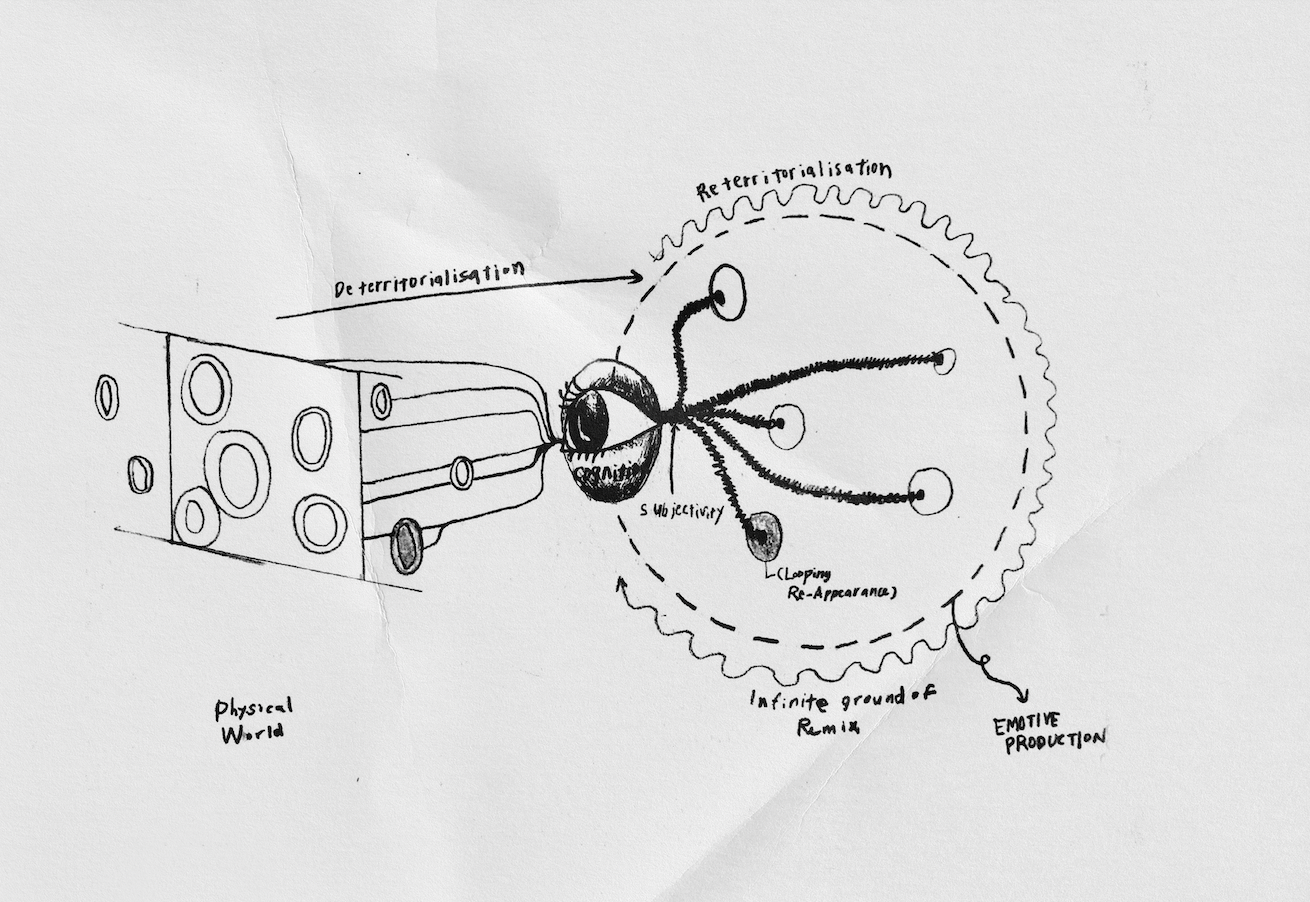 Reterritorialisation
Deterritorialisation
Cognition
Subjectivity
(Looping
Re-Appearance)
Physical
World
Infinite ground of
Remix
EMOTIVE
PRODUCTION